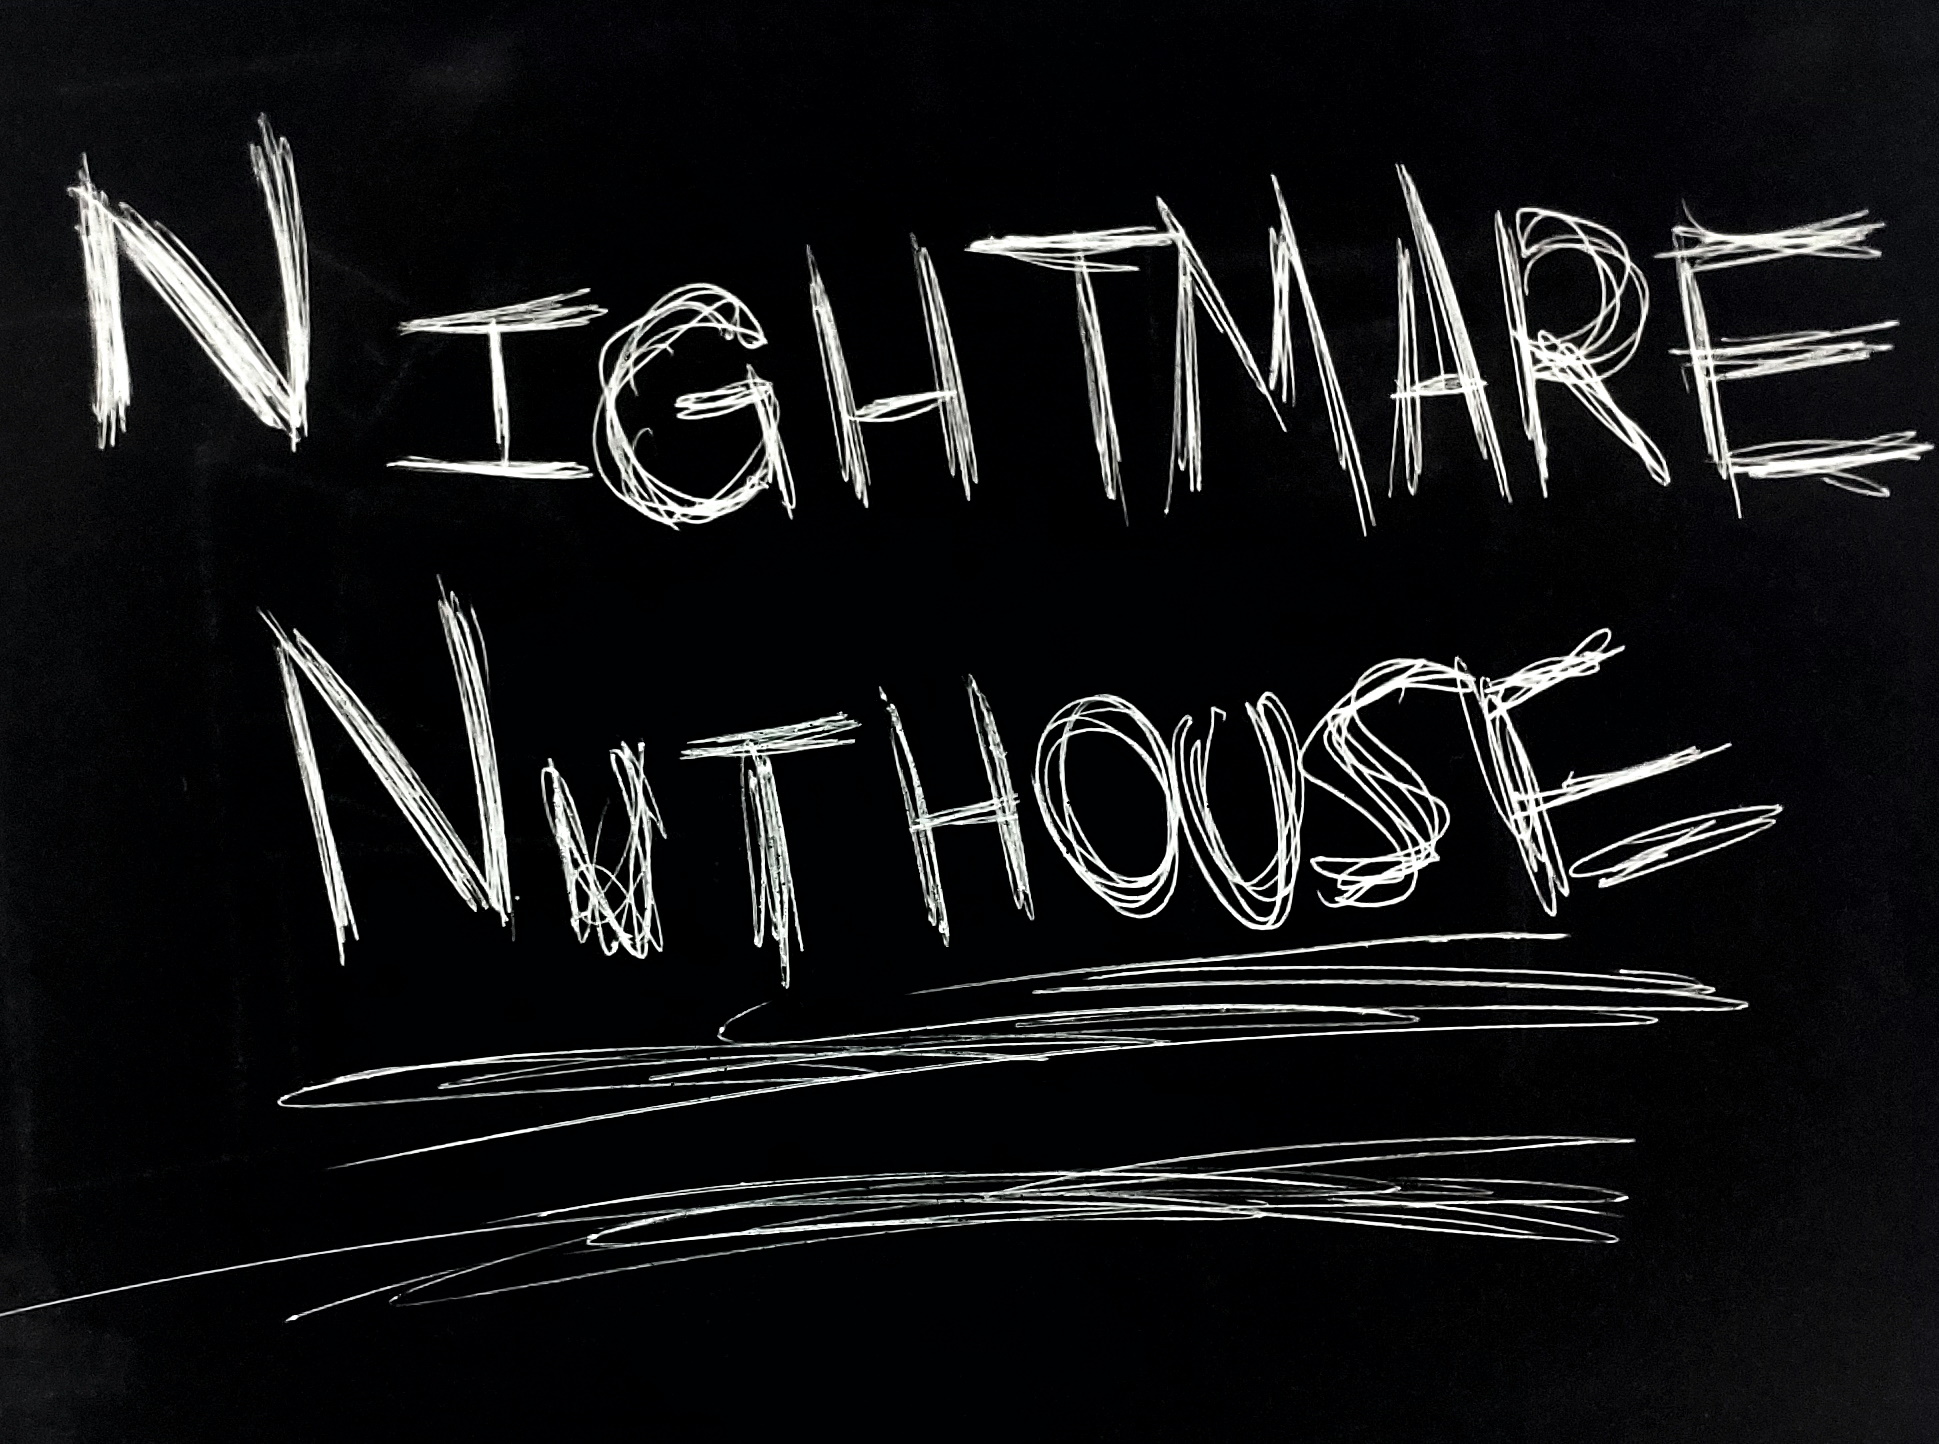 NIGHTMARE
NUTHOUSE